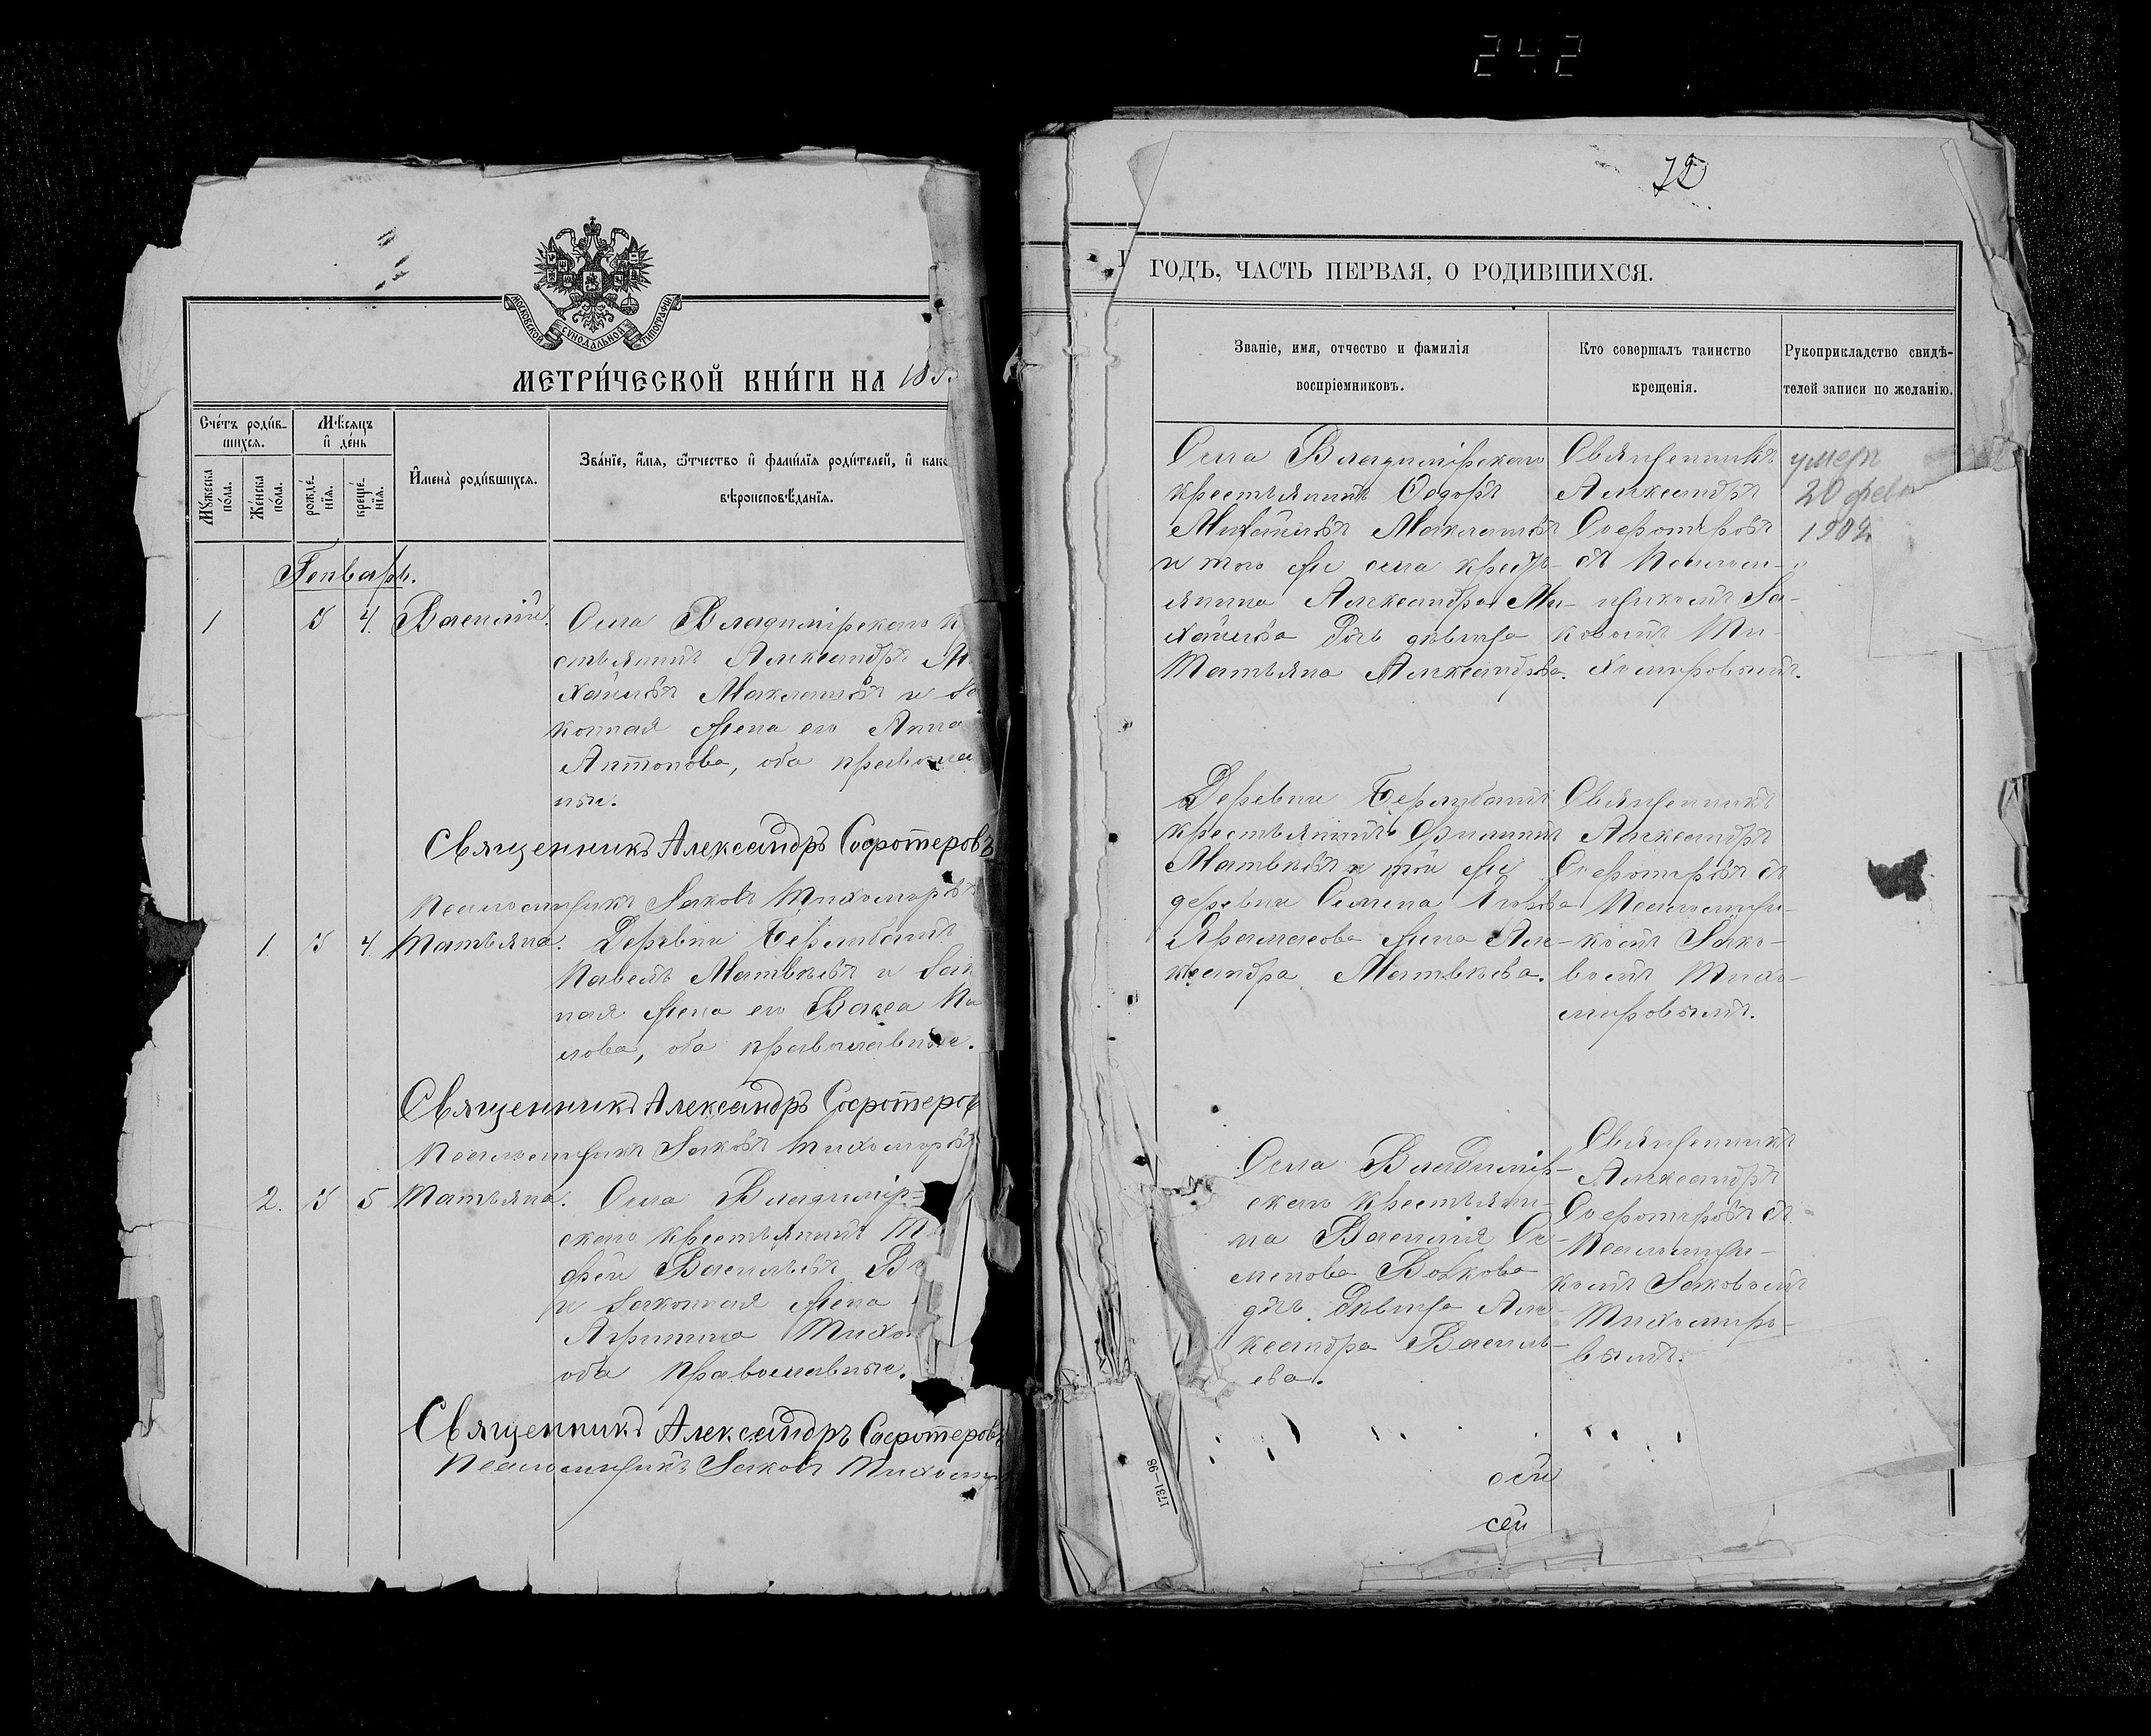 242
МОСКОВСКОЙ СѴНОДАЛЬНОЙ ТИПОГРАФІИ
МЕТРИ́ЧЕСКОЙ КНИ́ГИ НА 18
Сче́тъ роди́в-
шихся.
Мѣ́сяцъ
и҆ де́нь
Мꙋ́жеска
по́ла.
Же́нска
по́ла.
рожде́-
нїя.
креще́-
нїя.
И҆мена̀ роди́вшихся.
Зва́нїе, и҆́мя, ѻ҆́тчество и҆ фами́лїя роди́телей, и҆ како
вѣроисповѣ́данїя.
Генварь.
1 3 4. Василій. Села Владимірскаго к
стьянинъ Александръ Ми
хайловъ Маклаковъ и за
конная жена его Анна
Антонова, оба православ
ные.
Священникъ Александръ Соφотеровъ
Псаломщикъ Іаковъ Тихомировъ
1. 3 4. Татьяна. Деревни
Павелъ Матвѣевъ и зак
ная жена его Васса
лова, оба православные.
Священникъ Александръ Соφотеров
Псаломщикъ Іаковъ Тихомировъ
2. 3 5 Татьяна. Села Владимір-
скаго крестьянинъ
фей Васильевъ
и законная жена
Агрипина Тихо
оба православные.
Священникъ Александръ Соφотеровъ
Псаломщикъ Іаковъ Тихоми
ГОДЪ, ЧАСТЬ ПЕРВАЯ, О РОДИВШИХСЯ.
Званіе, имя, отчество и фамилія
воспріемниковъ.
Кто совершалъ таинство
крещенія.
Рукоприкладство свидѣ-
телей записи по желанію.
Села Владимірскаго
крестьянинъ Ѳедоръ
Михайловъ Маклаковъ
и того же села кресть-
янина Александра Ми-
хайлова дочь дѣвица
Татьяна Александрова.
Священникъ
Александръ
Соφотеровъ
съ Псалом-
щикомъ Іа-
ковомъ Ти-
хомировымъ.
умеръ
20 фев
1902
Деревни
крестьянинъ Филиппъ
Матвѣевъ и той же
деревни Симена
жена Але-
ксандра Матвѣева.
Священникъ
Александръ
Соφотеровъ съ
Псаломщи-
комъ Іако-
вомъ Тихо-
мировымъ.
Села Владимір-
скаго крестьяни-
на Василія Се-
менова Волкова
дочь дѣвица Але-
ксандра Василь-
ева.
Священникъ
Александръ
Соφотеровъ съ
Псаломщи-
комъ Іаковомъ
Тихомиро-
вымъ.
1731—98
сей